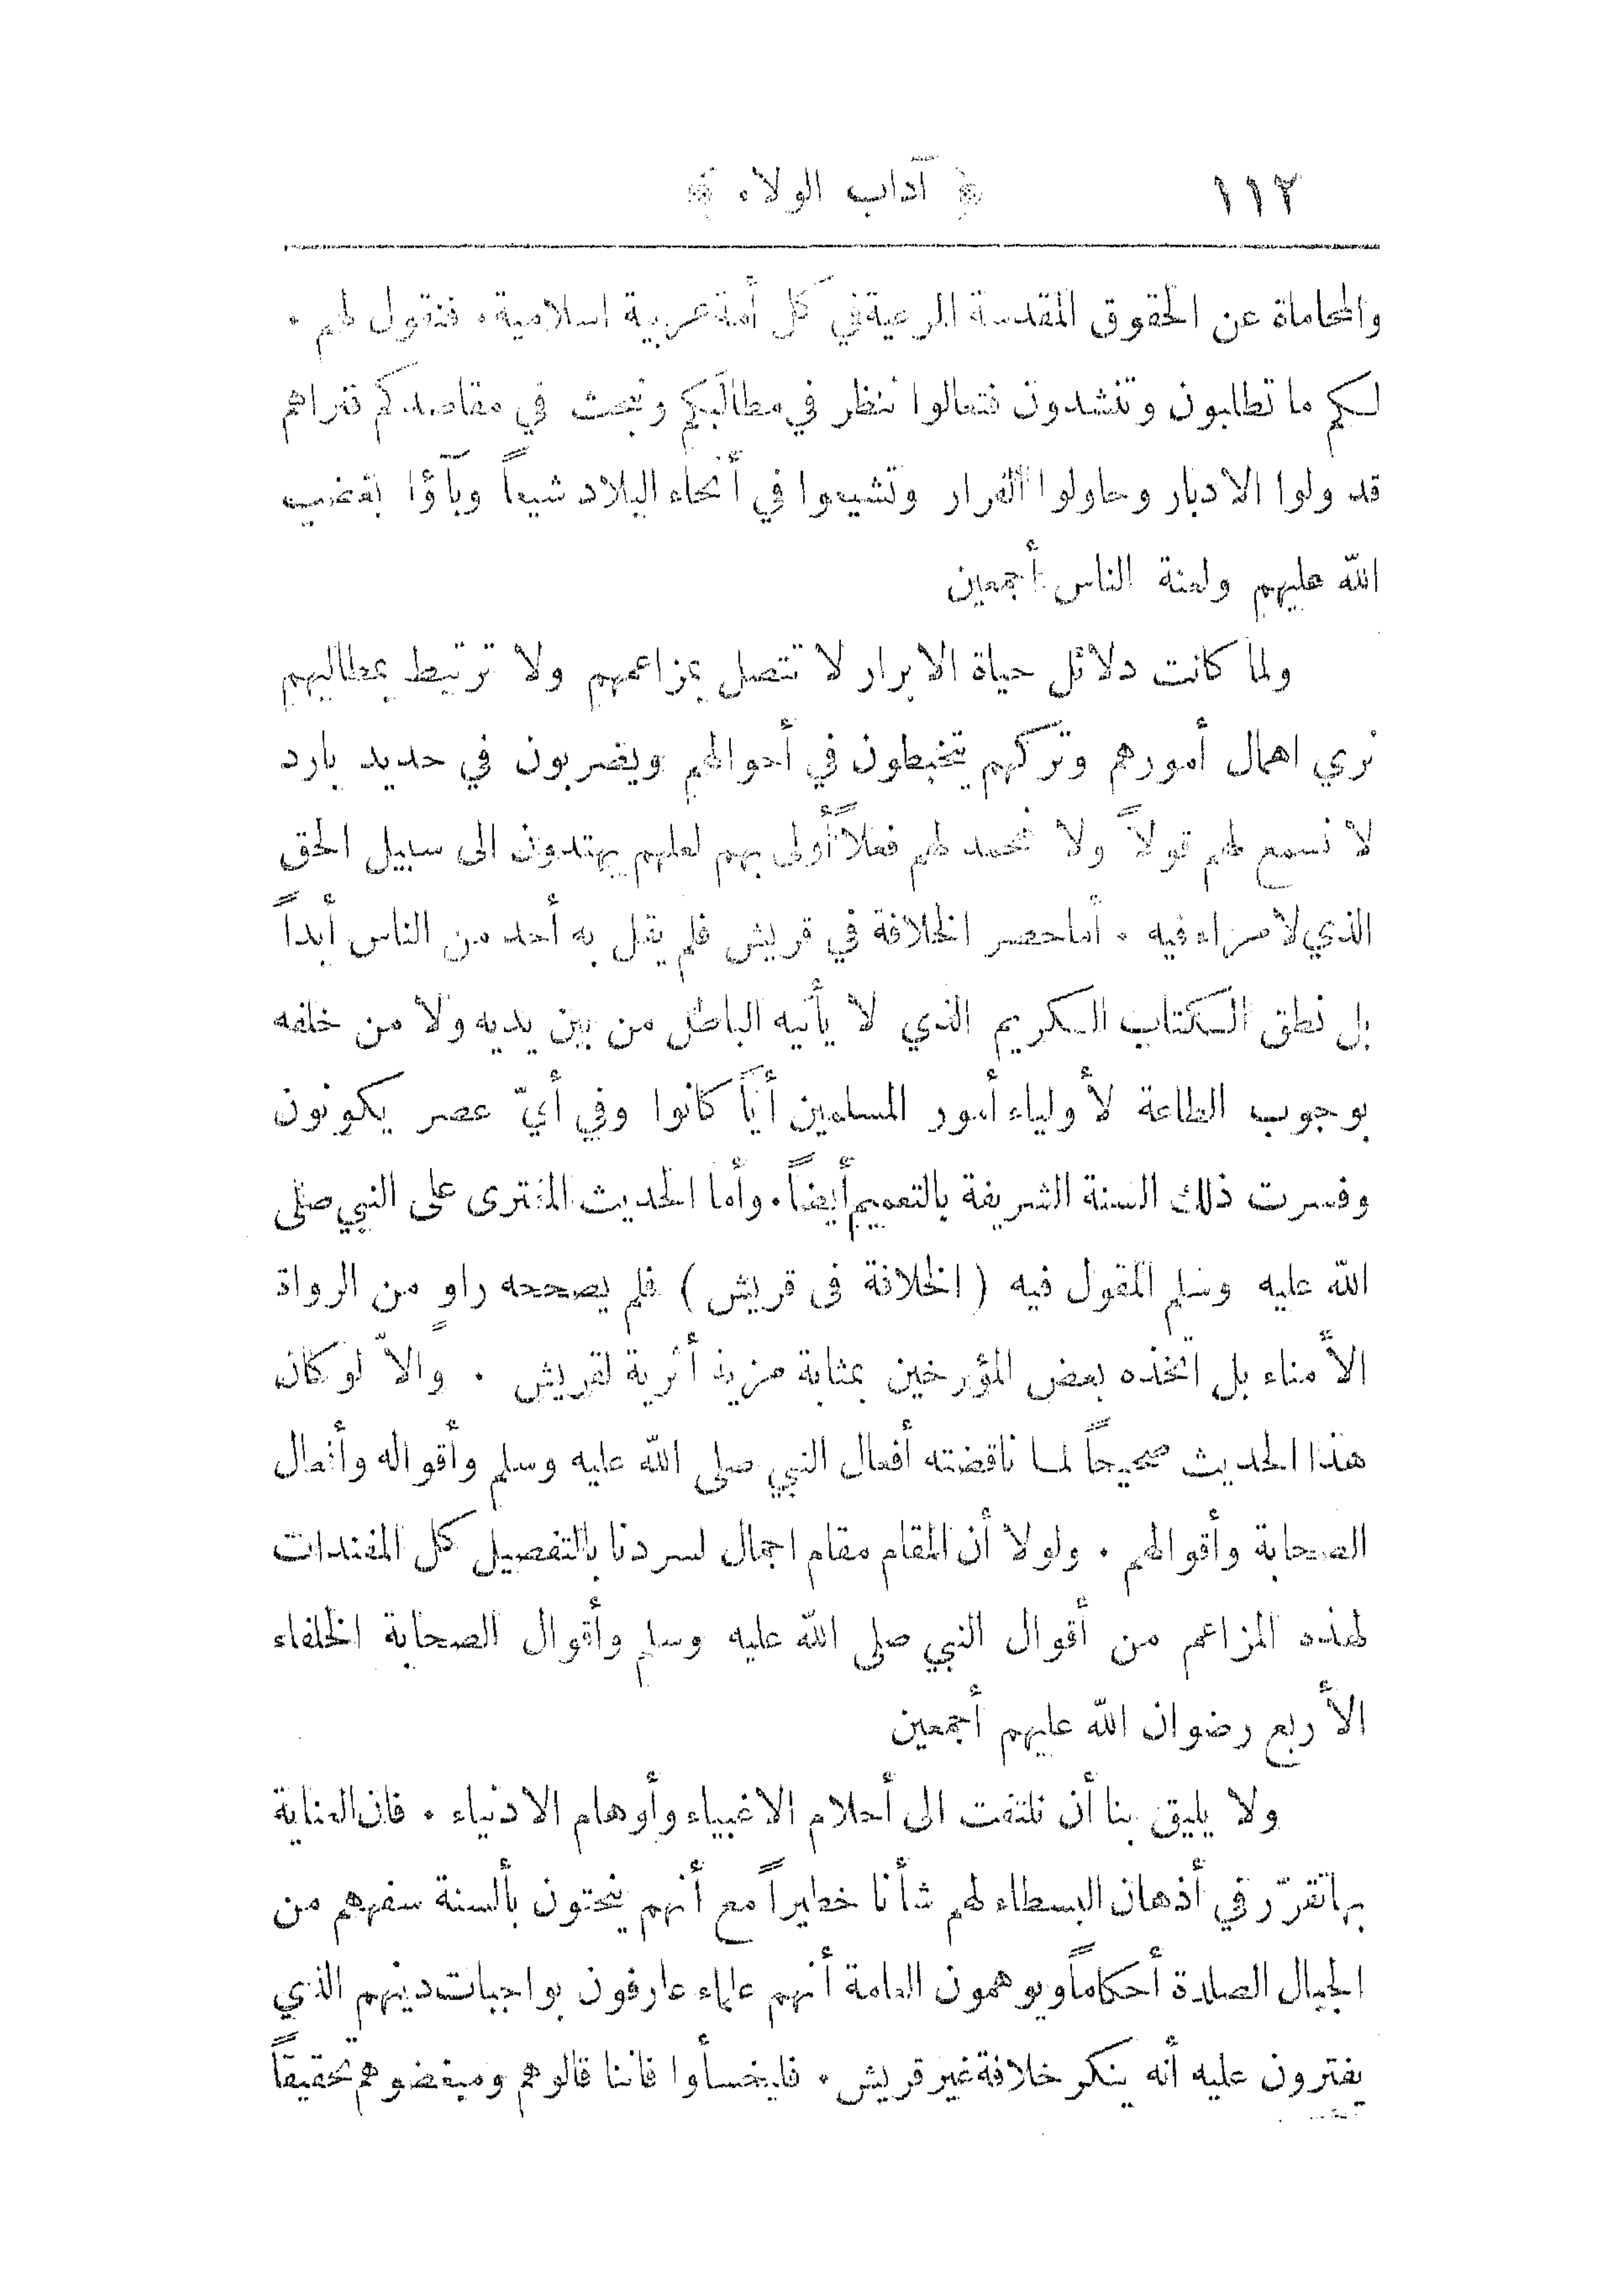 ١١٢ ﴿ آداب الولاء ﴾
والمحاماة عن الحقوق المقدسة المرعية في كل أمة عربية اسلامية . فنقول لهم .
لكم ما تطلبون وتنشدون فتعالوا ننظر في مطالبكم ونبحث في مقاصدكم فتراهم
قد ولوا الادبار وحاولوا الفرار وتشيعوا في أنحاء البلاد شيعاً وبآؤا بغضب
الله عليهم ولعنة الناس أجمعين
ولما كانت دلائل حياة الابرار لا تتصل بمزاعمهم ولا ترتبط بمطالبهم
نري اهمال أمورهم وتركهم يتخبطون في أحوالهم ويضربون في حديد بارد
لا نسمع لهم قولاً ولا نحمد لهم فعلاً أولى بهم لعلهم يهتدون الى سبيل الحق
الذي لا مراء فيه . أما حصر الخلافة في قريش فلم يقل به أحد من الناس أبداً
بل نطق الكتاب الكريم الذي لا يأتيه الباطل من بين يديه ولا من خلفه
بوجوب الطاعة لأولياء أمور المسلمين أياً كانوا وفي أيّ عصر يكونون
وفسرت ذلك السنة الشريفة بالتعميم أيضاً . وأما الحديث المفترى على النبي صلى
الله عليه وسلم المقول فيه ( الخلافة فى قريش ) فلم يصححه راوٍ من الرواة
الأمناء بل اتخذه بعض المؤرخين بمثابة مزية أثرية لقريش . والاّ لو كان
هذا الحديث صحيحاً لما ناقضته أفعال النبي صلى الله عليه وسلم وأقواله وأفعال
الصحابة وأقوالهم . ولولا أن المقام مقام اجمال لسردنا بالتفصيل كل المفندات
لهذه المزاعم من أقوال النبي صلى الله عليه وسلم وأقوال الصحابة الخلفاء
الأربع رضوان الله عليهم أجمعين
ولا يليق بنا أن نلتفت الى أحلام الاغبياء وأوهام الادنياء . فان العناية
بها تقرّر في أذهان البسطاء لهم شأنا خطيراً مع أنهم ينحتون بألسنة سفههم من
الجبال الصلدة أحكاماً ويوهمون العامة أنهم علماء عارفون بواجبات دينهم الذي
يفترون عليه أنه ينكر خلافة غير قريش . فليخسأوا فاننا قالوهم ومبغضوهم تحقيقاً